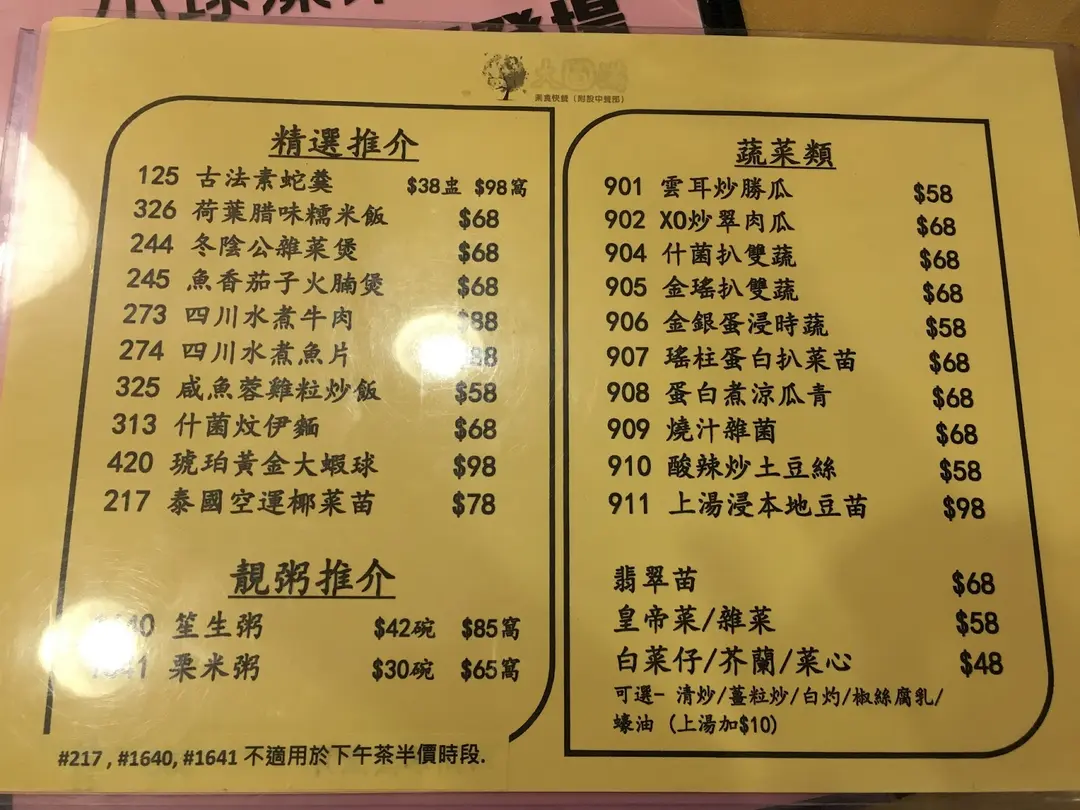 精選推介
125 古法素蛇羹 $38盅 $98窩
326 荷葉腊味糯米飯 $68
244 冬陰公雜菜煲 $68
245 魚香茄子火腩煲 $68
273 四川水煮牛肉 $88
274 四川水煮魚片
325 咸魚蓉雞粒炒飯 $58
313 什菌炆伊麵 $68
420 琥珀黃金大蝦球 $98
217 泰國空運椰菜苗 $78
靚粥推介
笙生粥 $42碗 $85窩
栗米粥 $30碗 $65窩
#217 , #1640, #1641 不適用於下午茶半價時段.
蔬菜類
901 雲耳炒勝瓜 $58
902 XO炒翠肉瓜 $68
904 什菌扒雙蔬 $68
905 金瑤扒雙蔬 $68
906 金銀蛋浸時蔬 $58
907 瑤柱蛋白扒菜苗 $68
908 蛋白煮涼瓜青 $68
909 燒汁雜菌 $68
910 酸辣炒土豆絲 $58
911 上湯浸本地豆苗 $98
翡翠苗 $68
皇帝菜/雜菜 $58
白菜仔/芥蘭/菜心 $48
可選- 清炒/薑粒炒/白灼/椒絲腐乳/
蠔油 (上湯加$10)